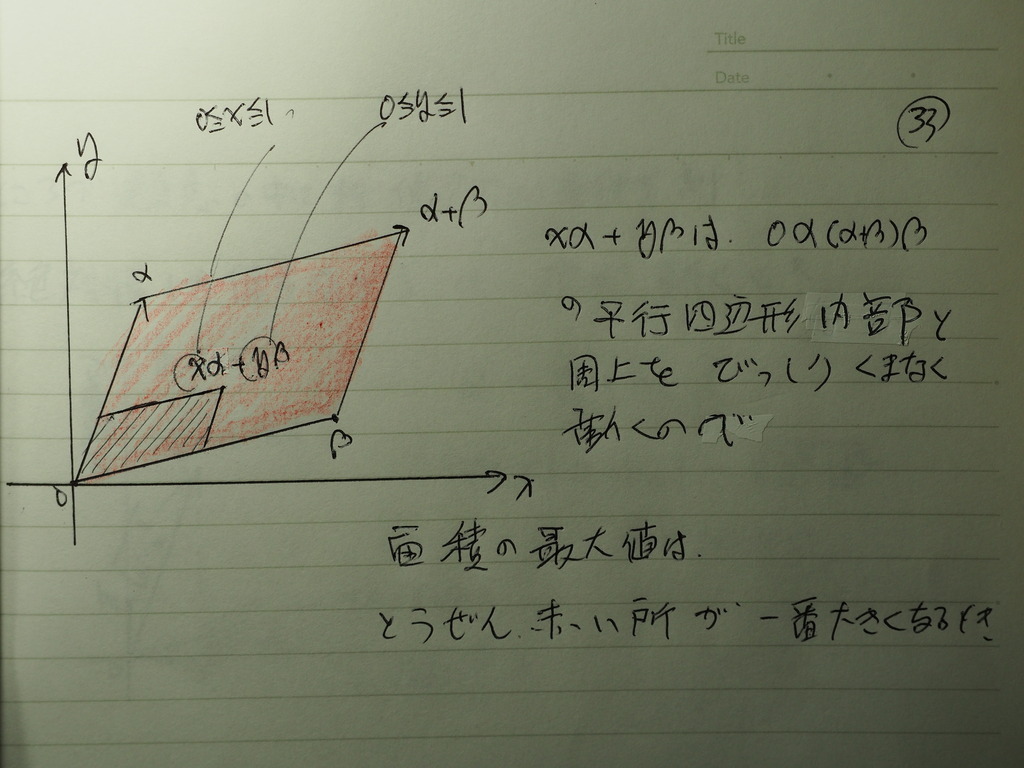 Title
Date
㉝
0≦x≦1
0≦y≦1
y
α+β
α
xα+yβ
β
0
x
xα+yβは. 0α(α+β)β
の平行四辺形内部と
周上を びっしりくまなく
動くので
面積の最大値は.
とうぜん.赤い所が一番大きくなるとき